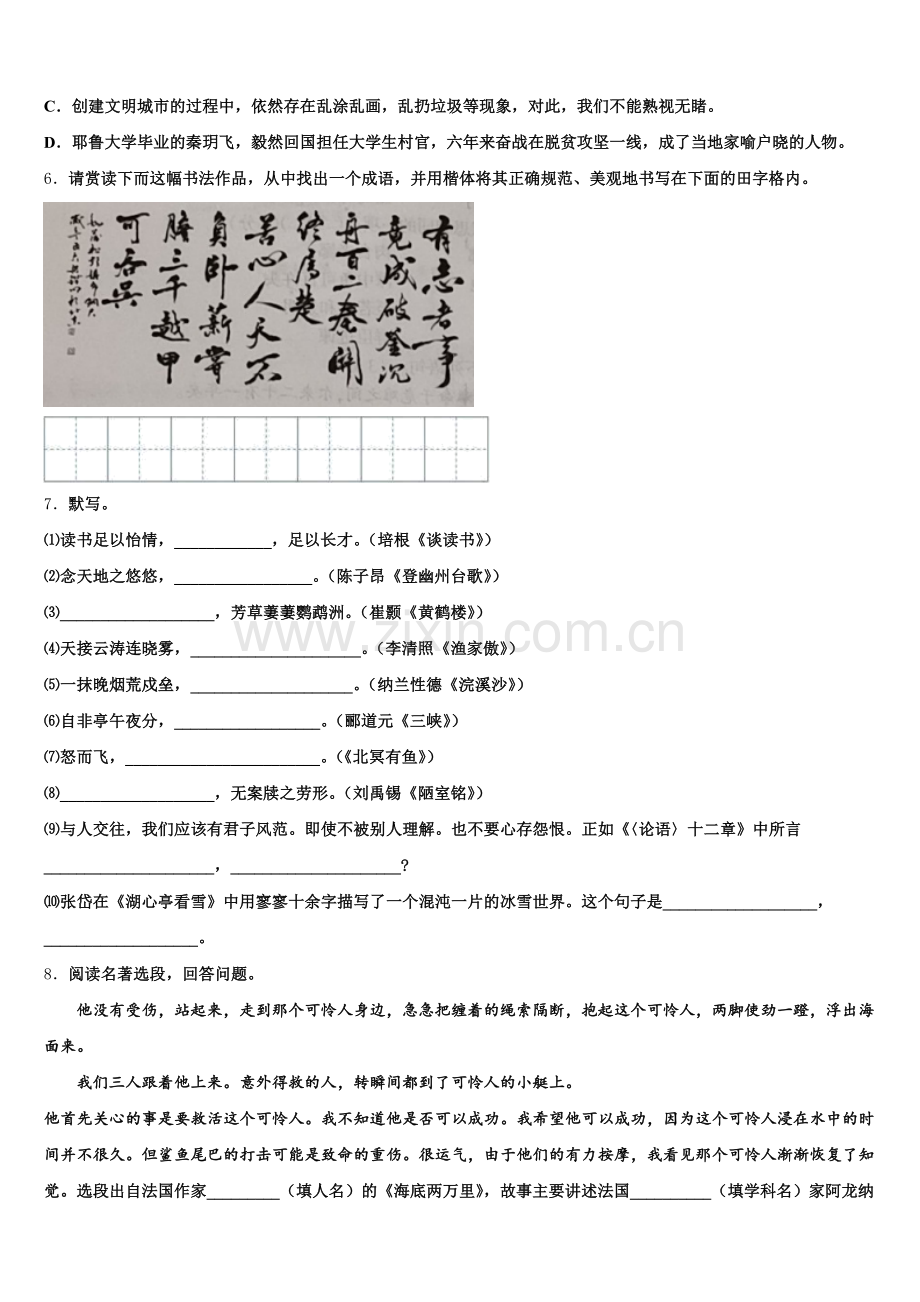 C．创建文明城市的过程中，依然存在乱涂乱画，乱扔垃圾等现象，对此，我们不能熟视无睹。
D．耶鲁大学毕业的秦玥飞，毅然回国担任大学生村官，六年来奋战在脱贫攻坚一线，成了当地家喻户晓的人物。
6．请赏读下而这幅书法作品，从中找出一个成语，并用楷体将其正确规范、美观地书写在下面的田字格内。
有志者事
竟成破釜沉
舟百二秦关
终属楚
苦心人天不
负卧薪尝
胆三千越甲
可吞吴
7．默写。
⑴读书足以怡情，____________，足以长才。（培根《谈读书》）
⑵念天地之悠悠，_________________。（陈子昂《登幽州台歌》）
⑶___________________，芳草萋萋鹦鹉洲。（崔颢《黄鹤楼》）
⑷天接云涛连晓雾，_____________________。（李清照《渔家傲》）
⑸一抹晚烟荒戍垒，____________________。（纳兰性德《浣溪沙》）
⑹自非亭午夜分，__________________。（郦道元《三峡》）
⑺怒而飞，________________________。（《北冥有鱼》）
⑻___________________，无案牍之劳形。（刘禹锡《陋室铭》）
⑼与人交往，我们应该有君子风范。即使不被别人理解。也不要心存怨恨。正如《〈论语〉十二章》中所言
_____________________，_____________________?
⑽张岱在《湖心亭看雪》中用寥寥十余字描写了一个混沌一片的冰雪世界。这个句子是___________________，
___________________。
www.zixin.com.cn
8．阅读名著选段，回答问题。
他没有受伤，站起来，走到那个可怜人身边，急急把缠着的绳索隔断，抱起这个可怜人，两脚使劲一蹬，浮出海
面来。
我们三人跟着他上来。意外得救的人，转瞬间都到了可怜人的小艇上。
他首先关心的事是要救活这个可怜人。我不知道他是否可以成功。我希望他可以成功，因为这个可怜人浸在水中的时
间并不很久。但鲨鱼尾巴的打击可能是致命的重伤。很运气，由于他们的有力按摩，我看见那个可怜人渐渐恢复了知
觉。选段出自法国作家_________（填人名）的《海底两万里》，故事主要讲述法国__________（填学科名）家阿龙纳